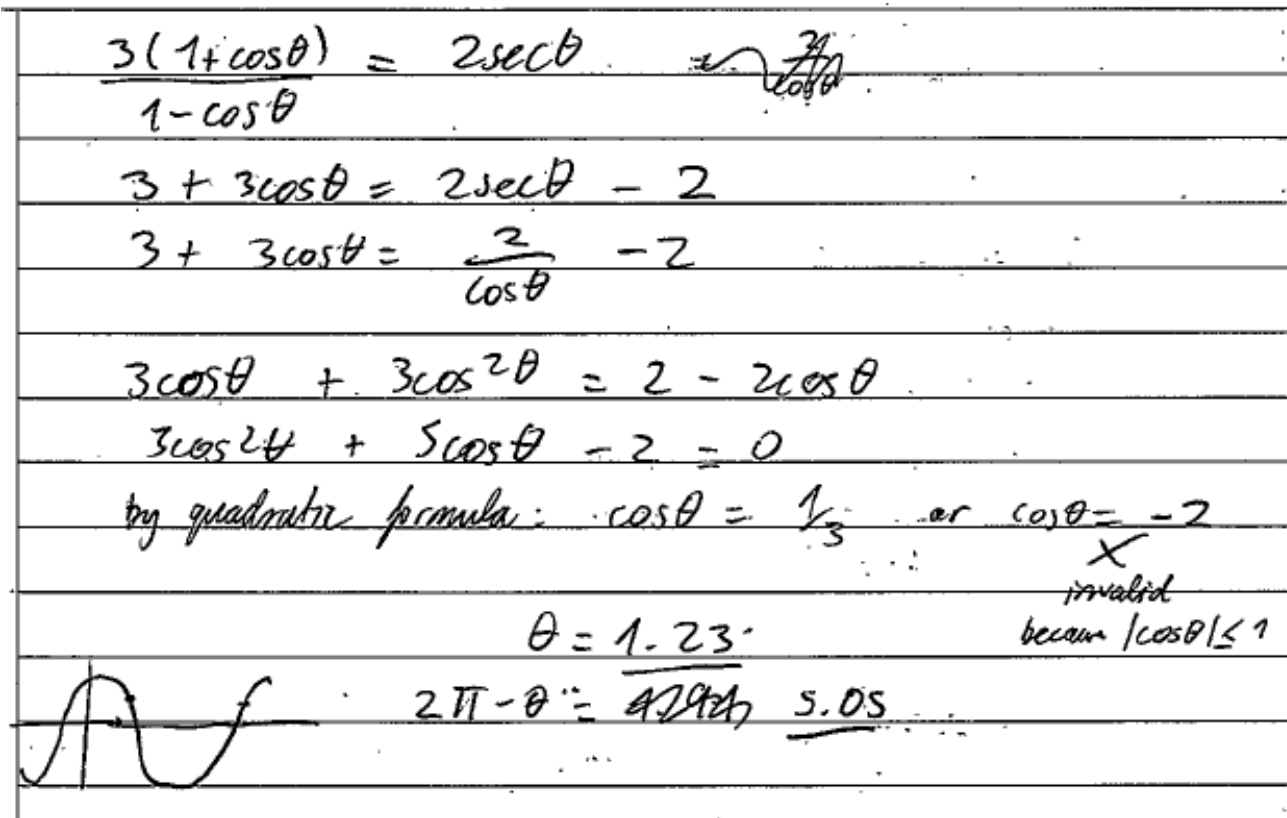 3(1+cosθ)/(1-cosθ) = 2secθ
3 + 3cosθ = 2secθ - 2
3 + 3cosθ = 2/cosθ - 2
3cosθ + 3cos²θ = 2 - 2cosθ
3cos²θ + 5cosθ - 2 = 0
by quadratic formula: cosθ = 1/3 or cosθ = -2
X
invalid
θ = 1.23 because |cosθ| ≤ 1
2π-θ = 5.05